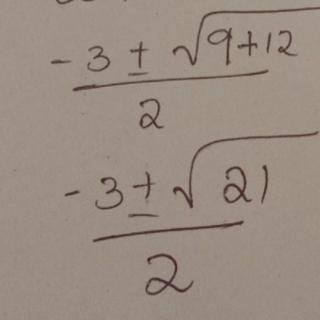 -3 ± √9+12
2
-3 ± √21
2